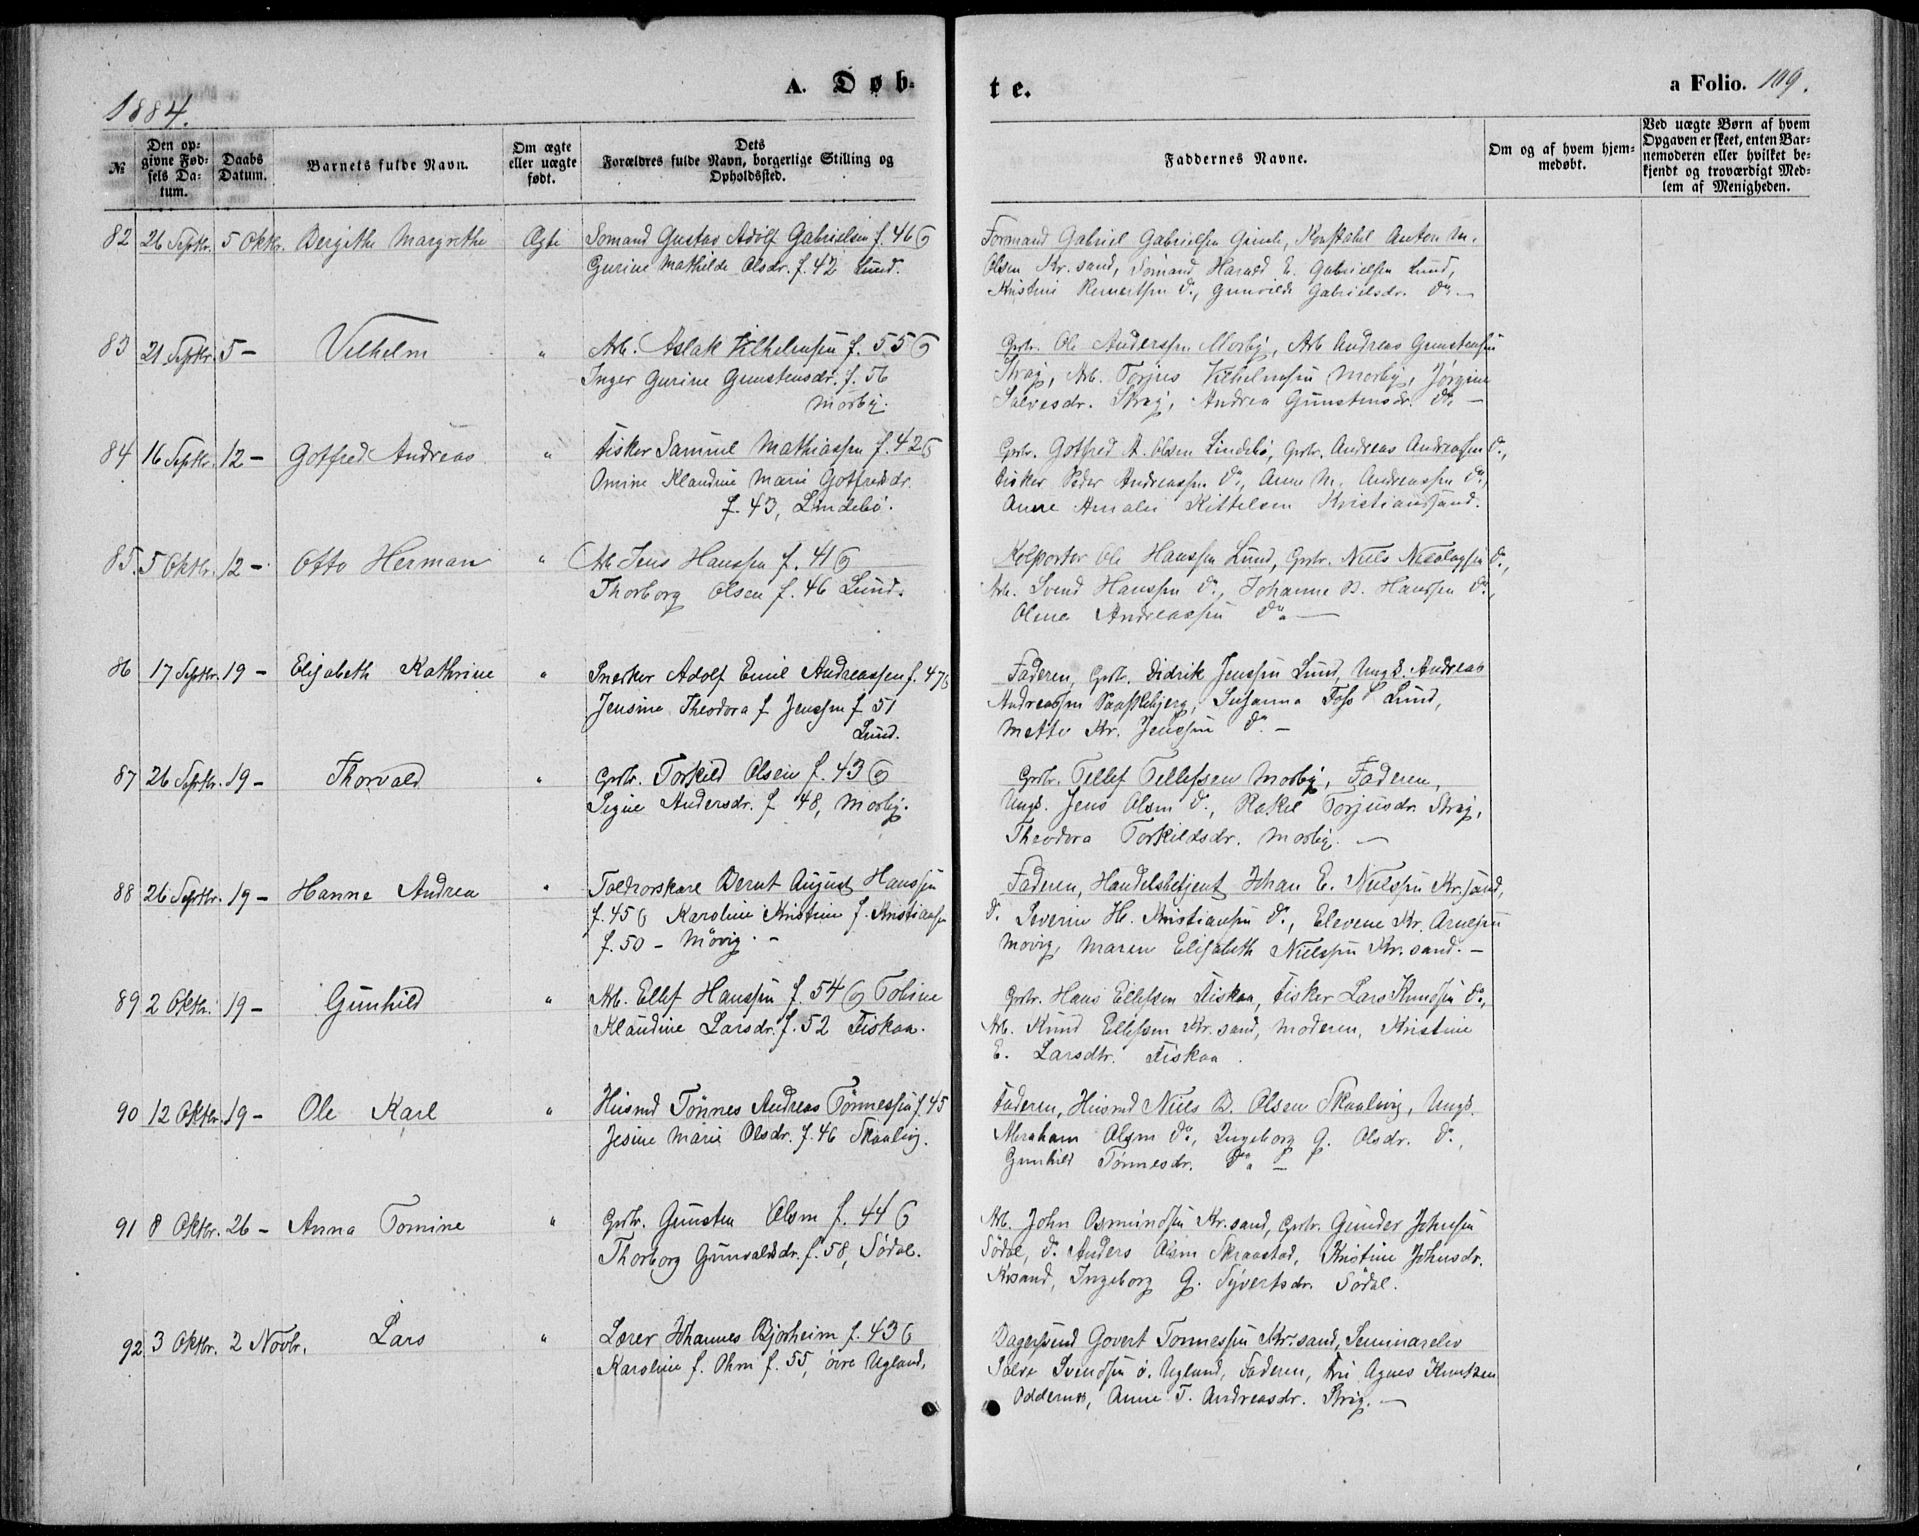 1884.
A. Døb-
te.
a Folio. 109.
№
Den op-
givne Fød-
sels Da-
tum.
Daabs
Datum.
Barnets fulde Navn.
Om ægte
eller uægte
født.
Dets
Forældres fulde Navn, borgerlige Stilling og
Opholdssted.
Faddernes Navne.
Om og af hvem hjem-
medøbt.
Ved uægte Børn af hvem
Opgaven er skeet, enten Bar-
nemoderen eller hvilket be-
kjendt og troværdigt Med-
lem af Menigheden.
82 26 Septbr. 5 Oktbr. Bergithe Margrethe Ægte Sömand Gustav Adolf Gabrielsen f. 46 &
Gurine Mathilde Olsdr. f. 42 Lund.
Formand Gabriel Gabrielsen Gimle, Konstabel Anton M.
Olsen Kr.sand, Sömand Harald E. Gabrielsen Lund,
Kristine Reinertsen do, Gunvilde Gabrielsdr. do —
83 21 Septbr. 5 — Vilhelm " Arb. Aslak Vilhelmsen f. 55 &
Inger Gurine Gunstensdr. f. 56
Mosby.
Grbr. Ole Anderssen Mosby, Arb Andreas Gunstensen
Strai, Arb. Torjus Vilhelmsen Mosby, Jörgine
Salvesdr. Strai, Andrea Gunstensdr. do —
84 16 Septbr. 12 — Gotfred Andreas " Fisker Samuel Mathiassen f. 42 &
Omine Klaudine Marie Gotfredsdr.
f. 43, Lindebö.
Grbr. Gotfred A. Olsen Lindebö, Grbr. Andreas Andreassen do,
Fisker Peder Andreassen do, Anne M. Andreassen do,
Anne Amalie Kittelsen Kristianssand.
85. 5 Oktbr. 12 — Otto Herman " Arb Jens Hanssen f. 41 &
Thorborg Olsen f. 46 Lund.
Kolportør Ole Hanssen Lund, Grbr. Niels Nicolaysen do,
Arb. Svend Hanssen do, Johanne B. Hanssen do,
Oline Andreassen do —
86 17 Septbr. 19 — Elisabeth Kathrine " Snerker Adolf Emil Andreassen f. 47 &
Jensine Theodora f Jenssen f 51
Lund.
Faderen, Grbr. Didrik Jenssen Lund, Ungk. Andreas
Andreassen, Susanna Foss Lund,
Mette Kr. Jenssen do —
87 26 Septbr. 19 — Thorvald " Grbr. Torkild Olsen f. 43 &
Signe Andersdr. f 48, Mosby.
Grbr. Tellef Tellefsen Mosby, Faderen,
Ungk. Jens Olsen do, Rakel Torjusdr. Strai,
Theodora Torkildsdr. Mosby. —
88 26 Septbr. 19 — Hanne Andrea " Toldrorskarl Bernt August Hanssen
f. 45 & Karoline Kristine f. Kristiansen
f. 50 — Mövig. —
Faderen, Handelsbetjent Johan E. Nielssen Kr.sand,
do Severin H. Kristiansen do, Elevene Kr. Arnesen
Movig, Maren Elisabeth Nielssen Kr.sand. —
89 2 Oktbr. 19 — Gunhild " Arb. Ellef Hanssen f. 54 & Tobine
Klaudine Larsdr. f. 52 Fiskaa.
Grbr. Hans Ellefsen Fiskaa, Fisker Lars Knudsen do,
Arb. Knud Ellefsen Kr.sand, Moderen, Kristine
E. Larsdtr. Fiskaa.
90 12 Oktbr. 19 — Ole Karl " Husmd Tönnes Andreas Tönnessen f. 45
Jesine Marie Olsdr. f. 46 Skaalvig.
Faderen, Husmd Niels B. Olsen Skaalvig, Ungk.
Abraham Olsen do, Ingeborg G. Olsdr. do,
Gunhild Tönnesdr. do —
91 8 Oktbr. 26 — Anna Tomine " Grbr. Gunsten Olsen f. 44 &
Thorborg Gunvaldsdr. f. 58, Södal.
Arb. John Osmundsen Kr.sand, Grbr. Gunder Johnsen
Södal, do Anders Olsen Skraastad, Kristine Johnsdr.
Krsand, Ingeborg G. Syvertsdr. Södal.
92 3 Oktbr. 2 Novbr. Lars " Lærer Johannes Bjorheim f. 43 &
Karoline f. Ohm f. 55, övre Ugland,
Bagersvend Govert Tonnessen Kr.sand, Seminarelev
Salve Svendsen ö. Ugland, Faderen, Fru Agnes Knutzen
Oddernes, Anne T. Andreasdr. Strai. —